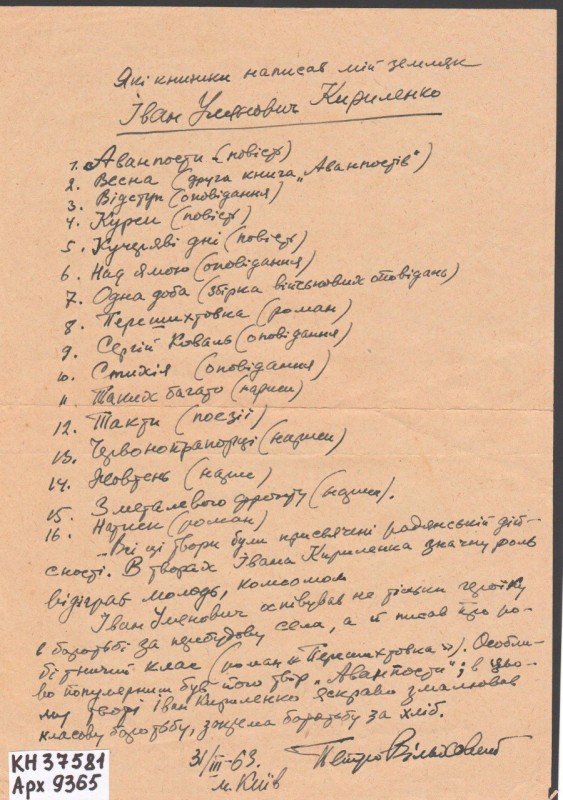 Які книжки написав мій земляк
Іван Уля́нович Кириленко
1. Аванпости (повість)
2. Весна (друга книга „Аванпостів")
3. Відступ (оповідання)
4. Курси (повість)
5. Кучеряві дні (повість)
6. Над ямою (оповідання)
7. Одна доба (збірка військових оповідань)
8. Перешихтовка (роман)
9. Сергій Коваль (оповідання)
10. Стихія (оповідання)
11. Таких багато (нариси)
12. Такти (поезії)
13. Червонопрапорці (нариси)
14. Жовтень (нарис)
15. З металевого фронту (нариси).
16. Натиск (роман)
„Всі ці твори були присвячені радянській дій-
сності. В творах Івана Кириленка значну роль
відіграє молодь, комсомол
Іван Улянович оспівував не тільки героїку
в боротьбі за перебудову села, а й писав про ро-
бітничий клас (роман „Перешихтовка"). Особли-
во популярним був його твір „Аванпости"; в цьо-
му творі Іван Кириленко яскраво змалював
класову боротьбу, зокрема боротьбу за хліб.
31/III-63.
м. Київ
Петро
КН37581
Арх 9365